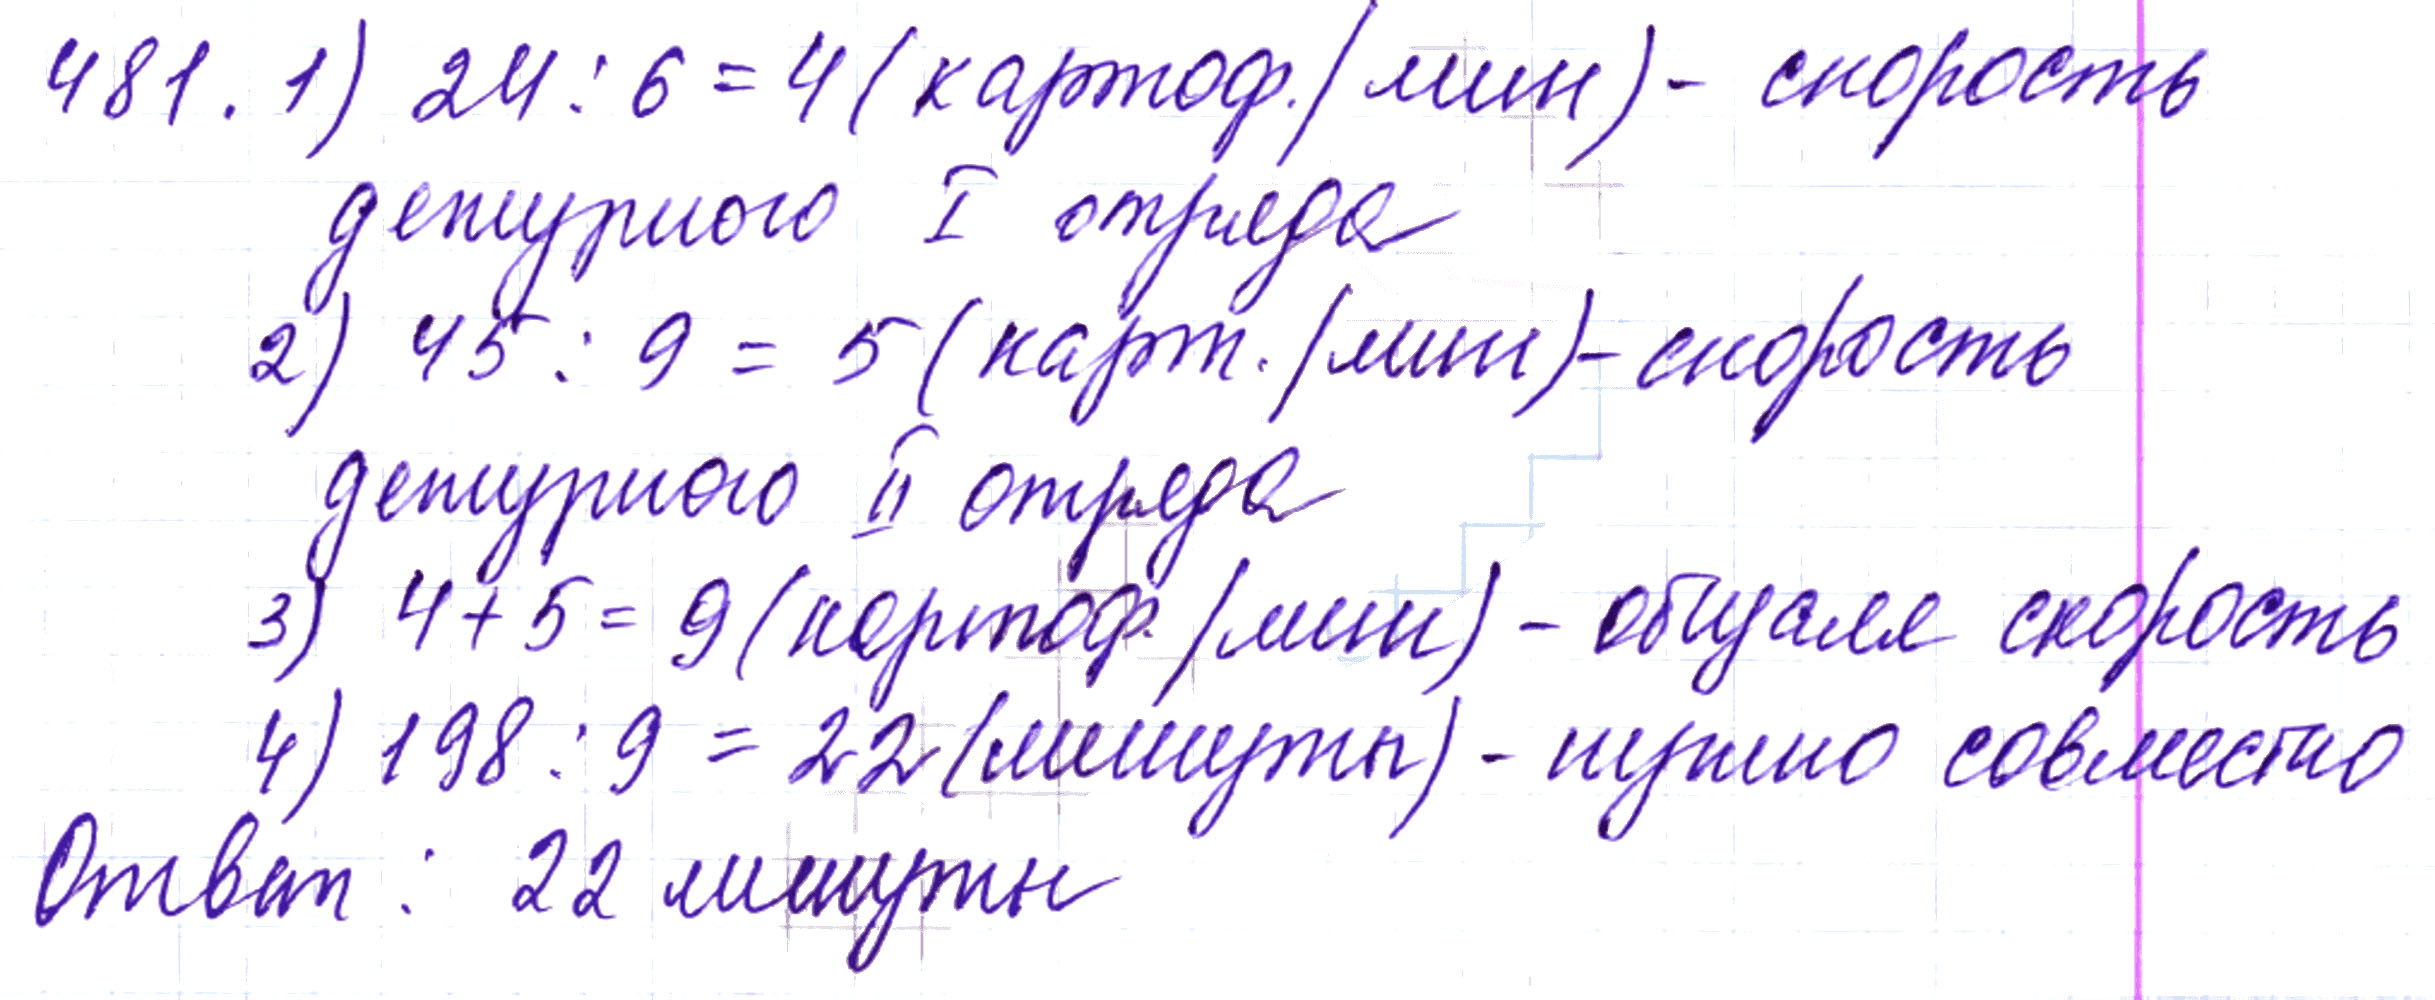 481. 1) 24 : 6 = 4 (картоф./мин) - скорость
дежурного I отряда
2) 45 : 9 = 5 (карт./мин) - скорость
дежурного II отряда
3) 4 + 5 = 9 (картоф./мин) - общая скорость
4) 198 : 9 = 22 (минуты) - нужно совместно
Ответ : 22 минуты